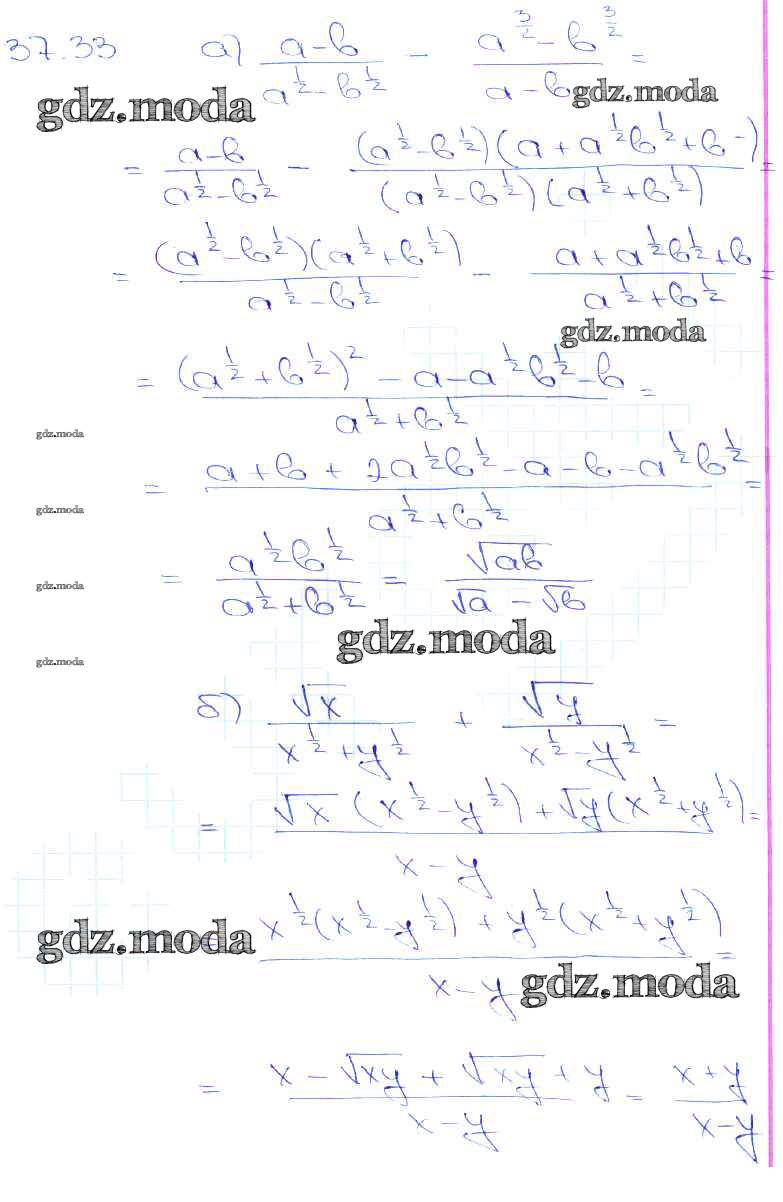 37.33 а) (a-b)/(a^{1/2}-b^{1/2}) - (a^{3/2}-b^{3/2})/(a-b) =
gdz.moda gdz.moda
= (a-b)/(a^{1/2}-b^{1/2}) - ((a^{1/2}-b^{1/2})(a+a^{1/2}b^{1/2}+b))/((a^{1/2}-b^{1/2})(a^{1/2}+b^{1/2})) =
= ((a^{1/2}-b^{1/2})(a^{1/2}+b^{1/2}))/(a^{1/2}-b^{1/2}) - (a+a^{1/2}b^{1/2}+b)/(a^{1/2}+b^{1/2}) =
gdz.moda
= ((a^{1/2}+b^{1/2})^2-a-a^{1/2}b^{1/2}-b)/(a^{1/2}+b^{1/2}) =
gdz.moda
= (a+b+2a^{1/2}b^{1/2}-a-b-a^{1/2}b^{1/2})/(a^{1/2}+b^{1/2}) =
gdz.moda
= (a^{1/2}b^{1/2})/(a^{1/2}+b^{1/2}) = √ab/(√a-√b)
gdz.moda
gdz.moda
gdz.moda
б) √x/(x^{1/2}+y^{1/2}) + √y/(x^{1/2}-y^{1/2}) =
= (√x(x^{1/2}-y^{1/2})+√y(x^{1/2}+y^{1/2}))/(x-y) =
gdz.moda (x^{1/2}(x^{1/2}-y^{1/2})+y^{1/2}(x^{1/2}+y^{1/2}))/(x-y) =
gdz.moda
= (x-√xy+√xy+y)/(x-y) = (x+y)/(x-y)